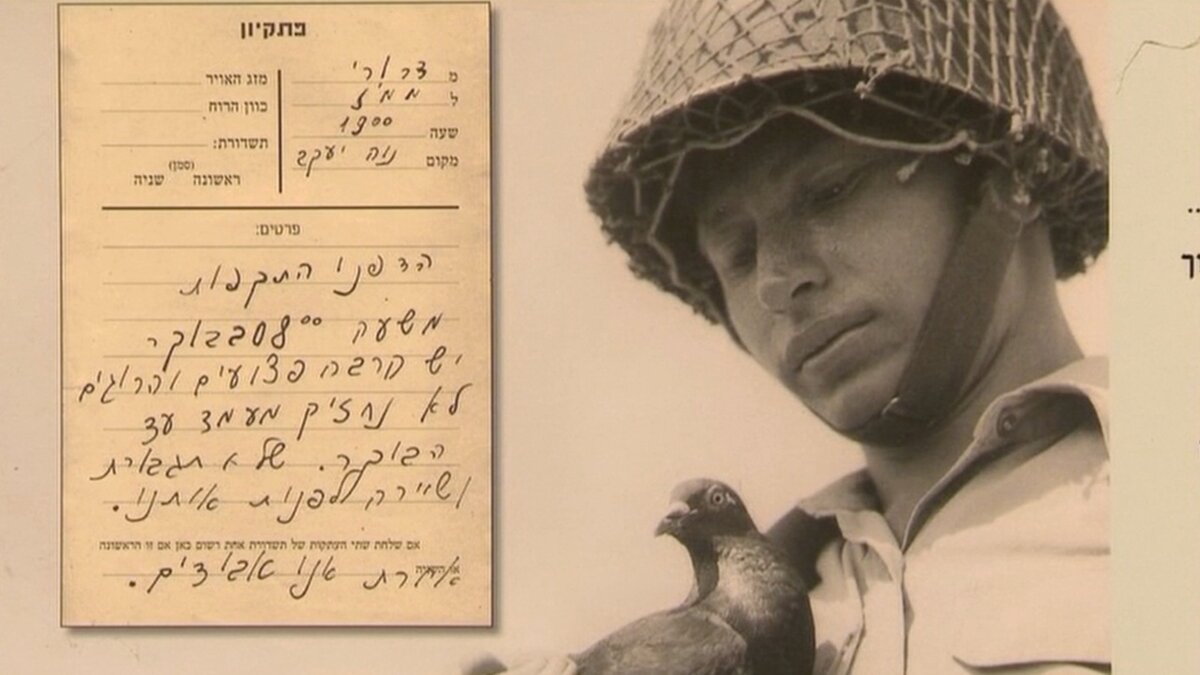 פתקיון
מ דרורי
ל ממ"ז
שעה 1900
מקום נוה יעקב
מזג האויר
כוון הרוח
תשדורת:
(סמן)
ראשונה שניה
פרטים:
הדפנו התקפות
משעה 0800 בבוקר
יש הרבה פצועים והרוגים
לא נחזיק מעמד עד
הבוקר. שלח תגבורת
ושיירה לפנות אותנו.
אם שלחת שתי העתקות של תשדורת אחת רשום כאן אם זו הראשונה
או השניה
אחרת אנו אבודים.